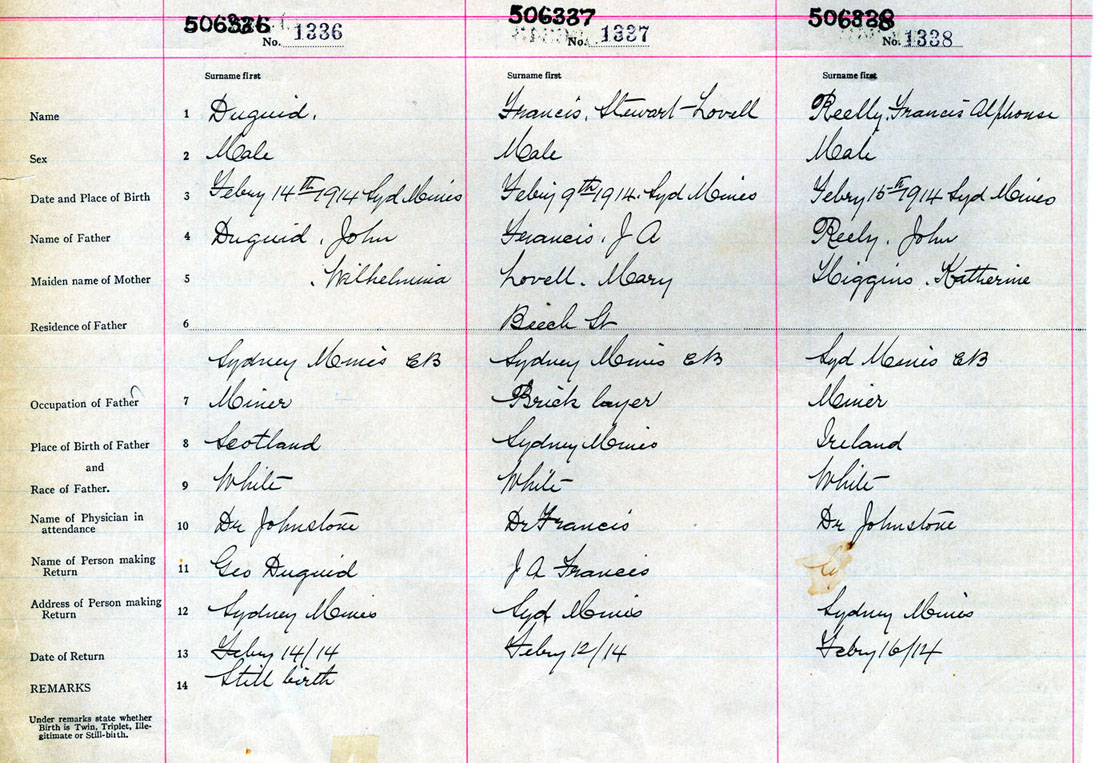 506336 506337 506338
No. 1336 No. 1337 No. 1338
Surname first Surname first Surname first
Name 1 Duguid. Francis, Stewart-Lovell Reelly, Francis Alphonse
Sex 2 Male Male Male
Date and Place of Birth 3 Febry 14th 1914 Syd Mines Febry 9th 1914. Syd Mines Febry 15th 1914 Syd Mines
Name of Father 4 Duguid, John Francis, J A Reely, John
Maiden name of Mother 5 , Wilhelmina Lovell. Mary Higgins, Katherine
Residence of Father 6 Beech St
Sydney Mines CB Sydney Mines CB Syd Mines CB
Occupation of Father 7 Miner Brick layer Miner
Place of Birth of Father 8 Scotland Sydney Mines Ireland
and
Race of Father. 9 White White White
Name of Physician in attendance 10 Dr Johnstone Dr Francis Dr Johnstone
Name of Person making Return 11 Geo Duguid J A Francis
Address of Person making Return 12 Sydney Mines Syd Mines Sydney Mines
Date of Return 13 Febry 14/14 Febry 12/14 Febry 16/14
REMARKS 14 Still birth
Under remarks state whether
Birth is Twin, Triplet, Ille-
gitimate or Still-birth.